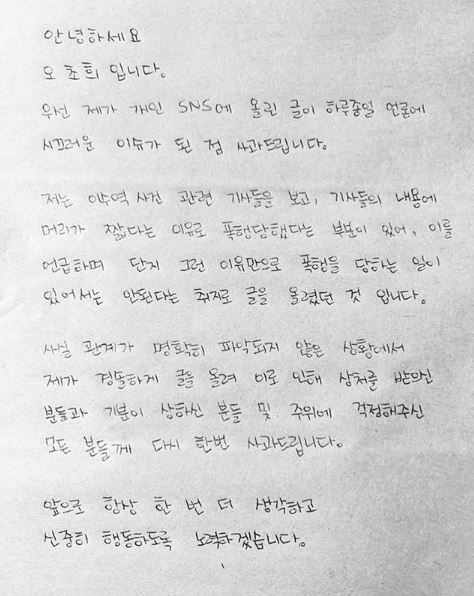 안녕하세요
오초희 입니다.
우선 제가 개인 SNS에 올린 글이 하루종일 언론에
시끄러운 이슈가 된 점 사과드립니다.
저는 이수역 사건 관련 기사들을 보고, 기사들의 내용에
머리가 짧다는 이유로 폭행당했다는 부분이 있어, 이를
언급하며 단지 그런 이유만으로 폭행을 당하는 일이
있어서는 안된다는 취지로 글을 올렸던 것 입니다.
사실 관계가 명확히 파악되지 않은 상황에서
제가 경솔하게 글을 올려 이로 인해 상처를 받으신
분들과 기분이 상하신 분들 및 주위에 걱정해주신
모든 분들께 다시 한번 사과드립니다.
앞으로 항상 한 번 더 생각하고
신중히 행동하도록 노력하겠습니다.